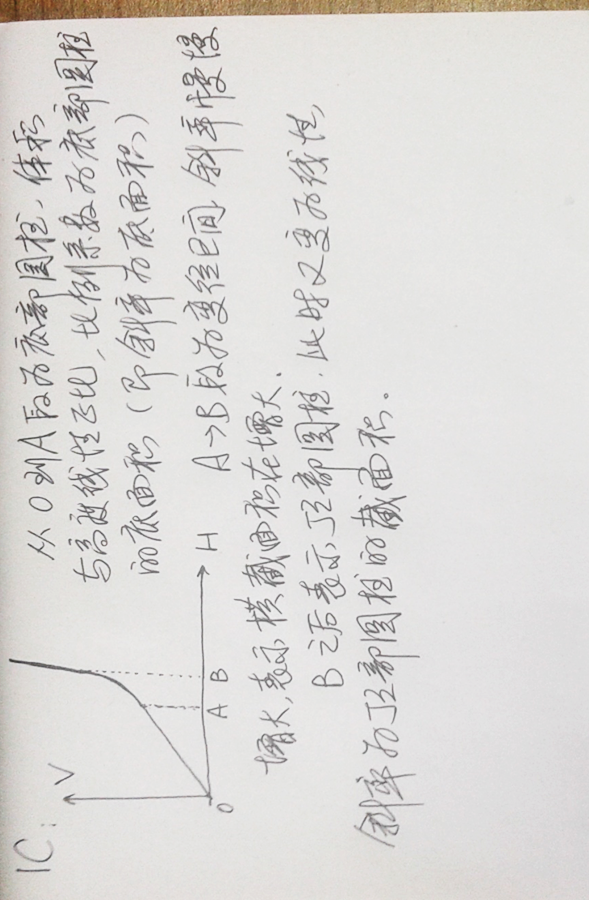 1C:
V
从0到A段为底部圆柱,体积
与高现线性正比,比例系数为底部圆柱
的底面积(即斜率为底面积)
O A B H
A→B段为变径区间,斜率慢慢
增大,表示横截面积在增大.
B之后表示顶部圆柱,此时又变为线性,
斜率为顶部圆柱的截面积。